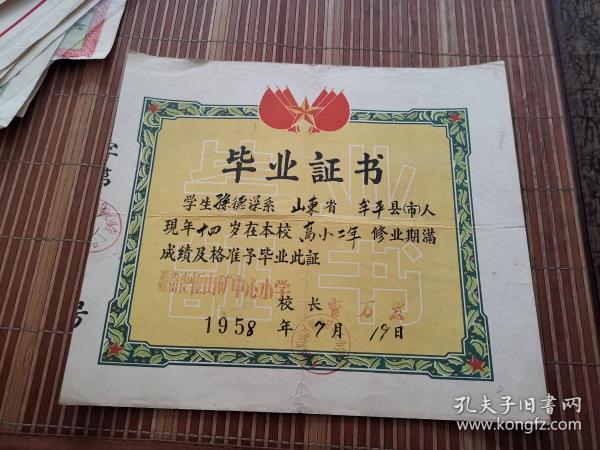 毕业証书
学生孫德深系 山東省 牟平县(市)人
現年十四岁在本校 高小二年 修业期滿
成績及格准予毕业此証
山矿中心小学
校长 万
1958年7月19日
字第
号
孔夫子旧書网
www.kongfz.com